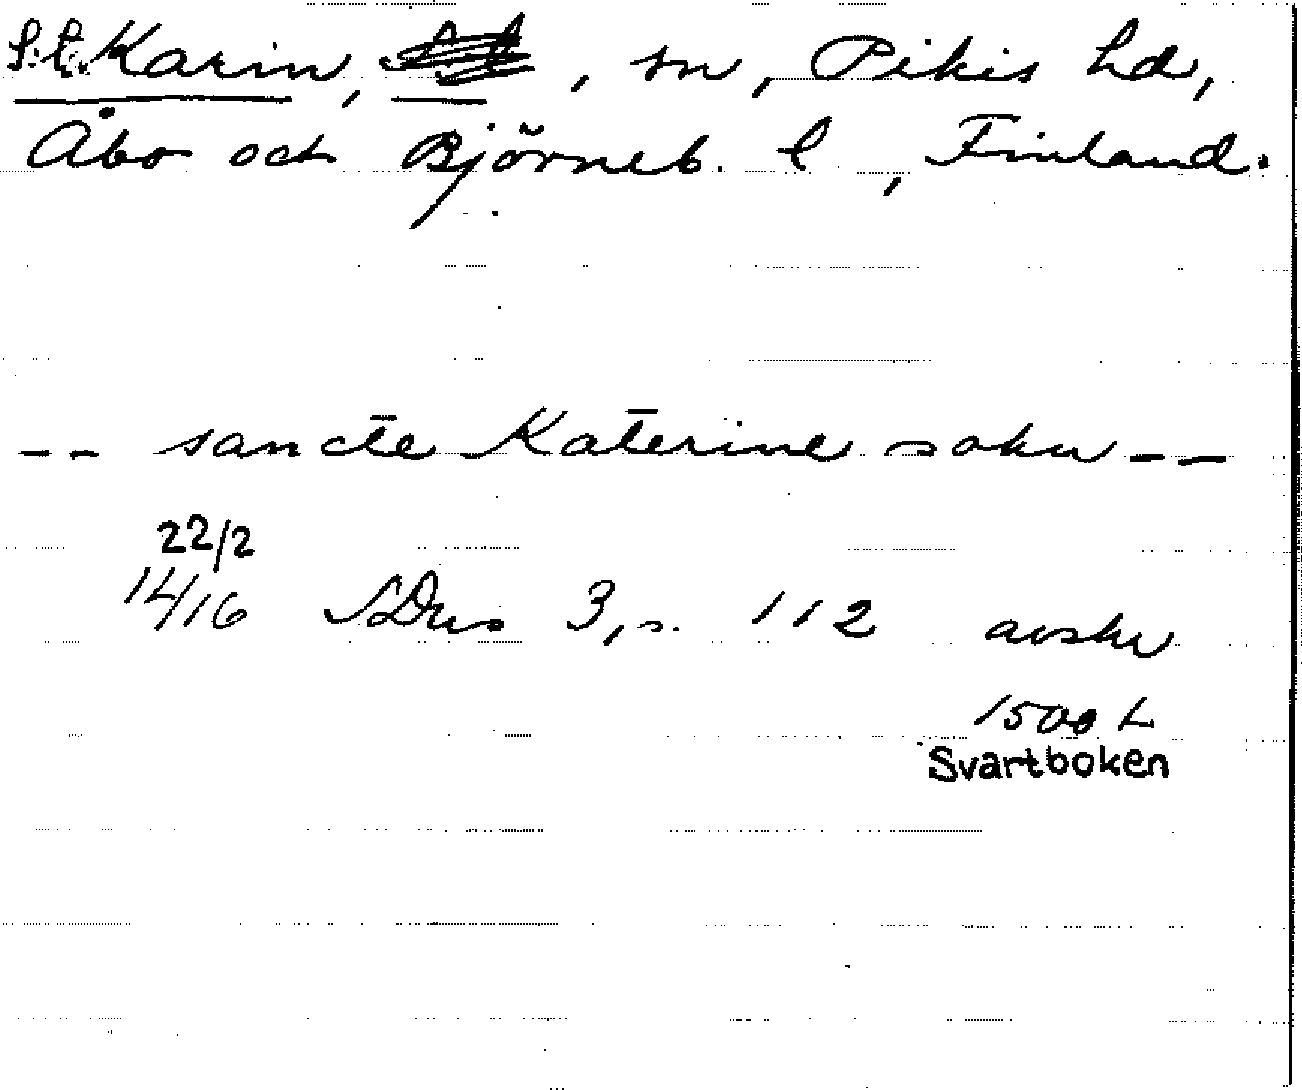 S:t Karin, , sn, Pikis hd,
Åbo och Björneb. l, Finland.
-- sancte Katerine sokn --
22/2
14/16 SDns 3, s. 112 avskr
1500 t
Svartboken